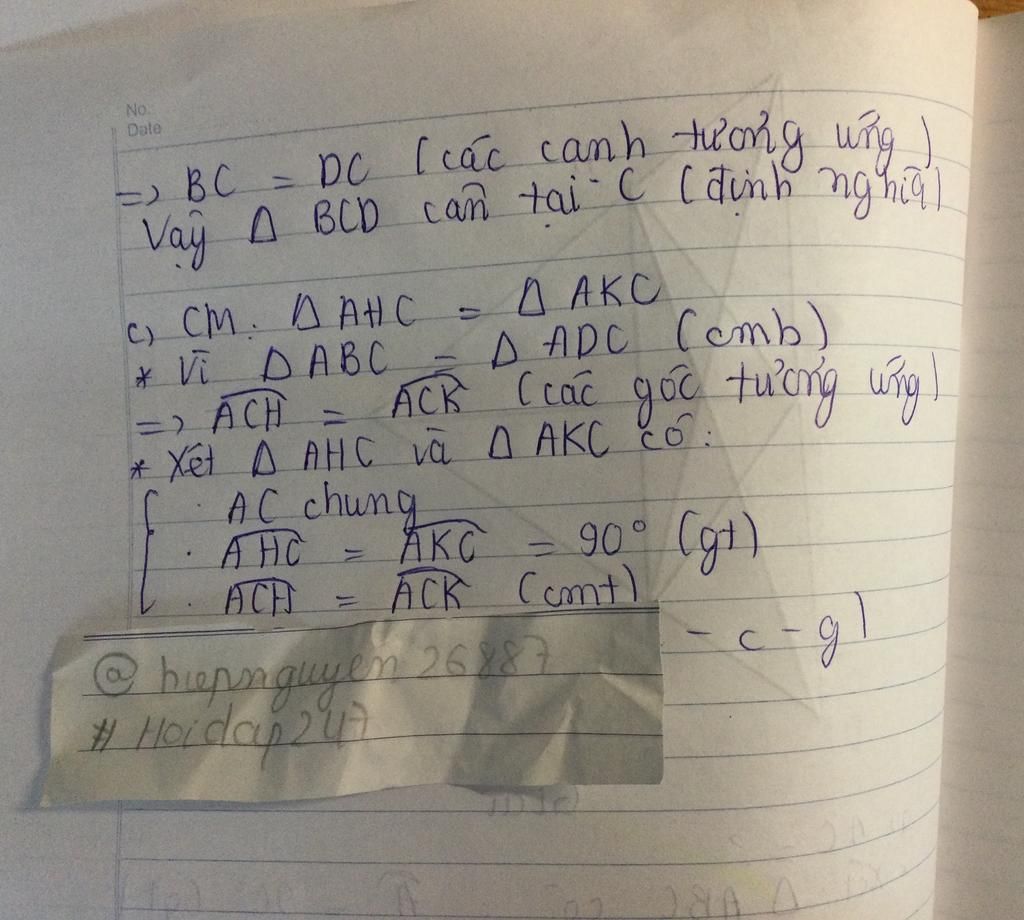 No.
Date
=> BC = DC (các cạnh tương ứng)
Vậy Δ BCD cân tại C (định nghĩa)
c) CM. Δ AHC = Δ AKC
* Vì Δ ABC = Δ ADC (cmb)
=> ACH = ACK (các góc tương ứng)
* Xét Δ AHC và Δ AKC có:
. AC chung
. AHC = AKC = 90° (gt)
. ACH = ACK (cmt)
- c - g)
@ hiepnguyen26887
# Hoidap247